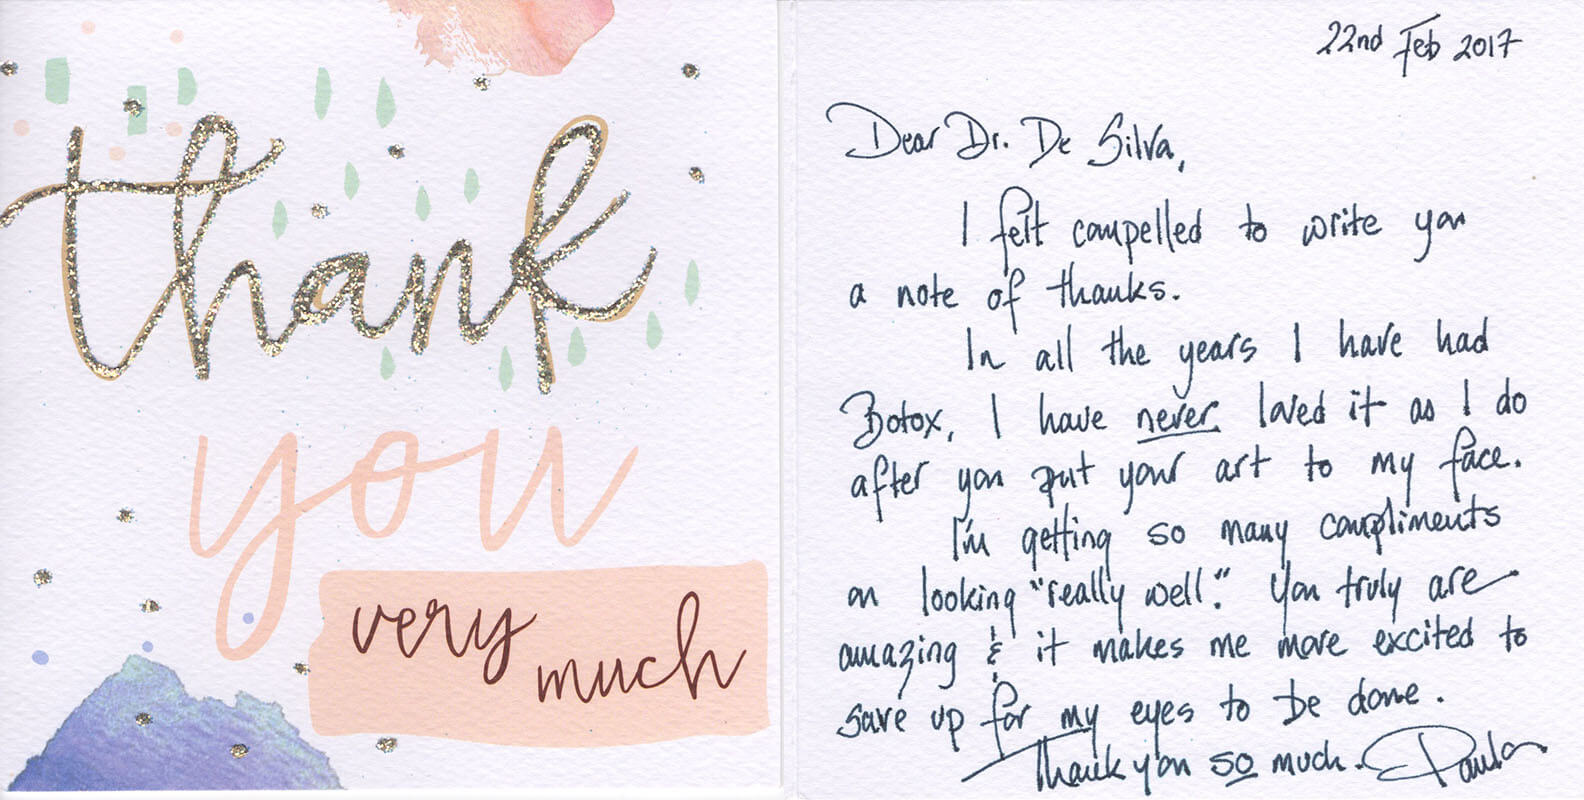 thank
you
very
much
22nd Feb 2017
Dear Dr. De Silva,
I felt compelled to write you
a note of thanks.
In all the years I have had
Botox, I have never loved it as I do
after you put your art to my face.
I'm getting so many compliments
on looking "really well". You truly are
amazing & it makes me more excited to
save up for my eyes to be done.
Thank you so much. Paula